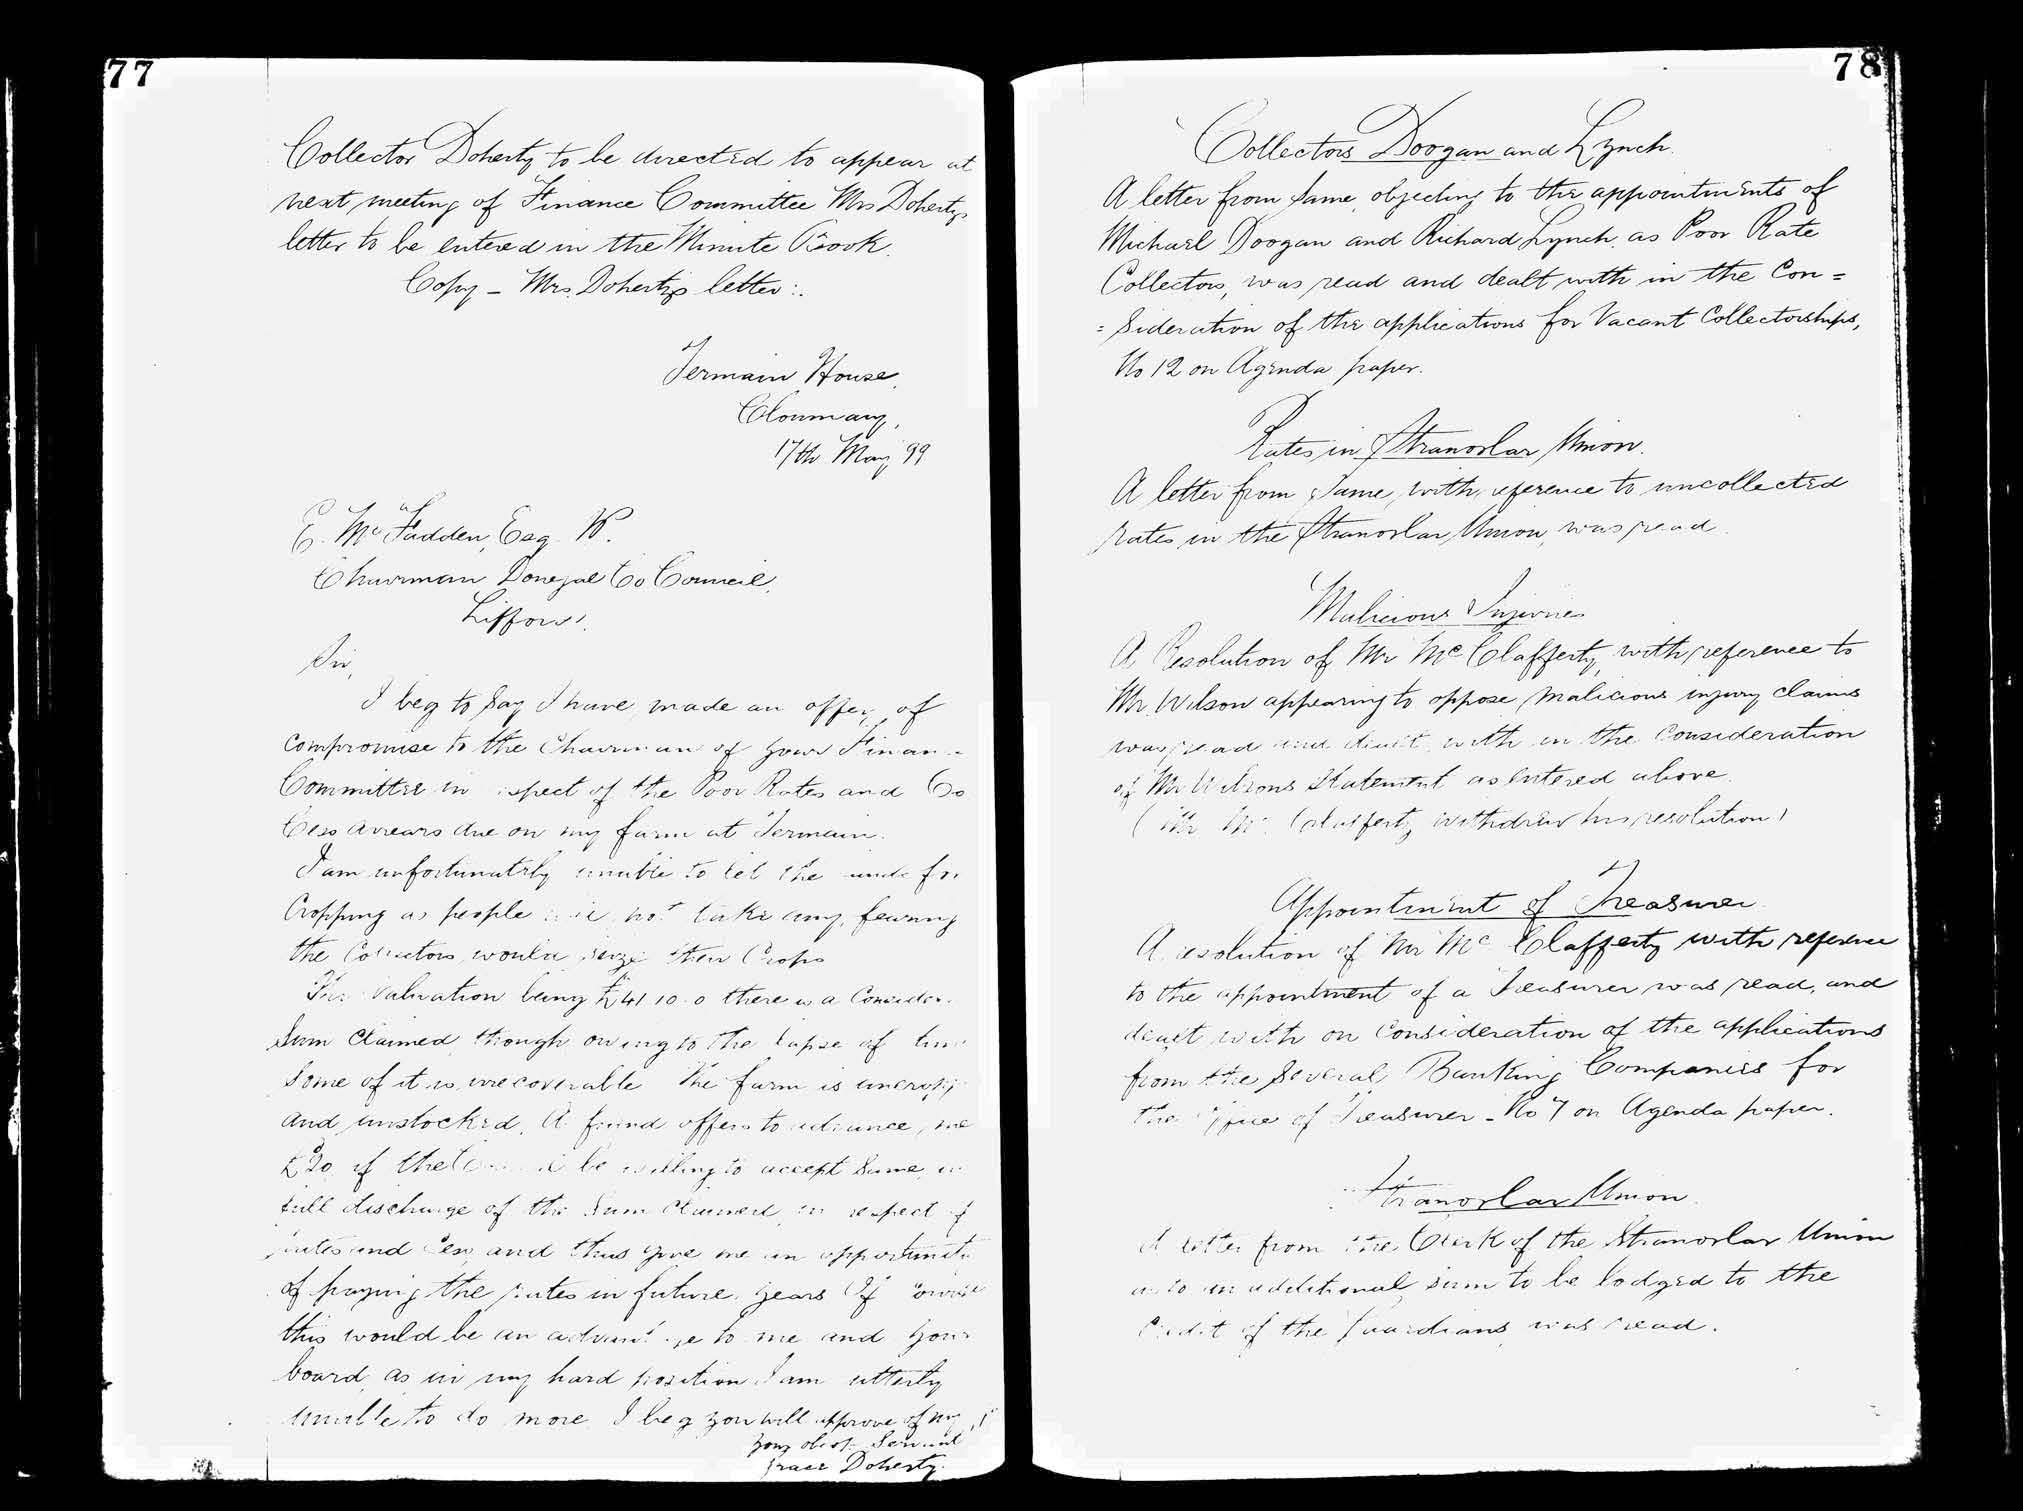 77
Collector Doherty to be directed to appear at
next meeting of Finance Committee Mrs Doherty's
letter to be entered in the Minute Book.
Copy - Mrs. Doherty's letter:.
Termain House,
Clonmany,
17th May 99
E. McFadden, Esq
Chairman Donegal Co Council,
Lifford.
Sir,
I beg to say I have made an offer of
compromise to the Chairman of your Finan
Committee in respect of the Poor Rates and Co
Cess arrears due on my farm at Termain.
I am unfortunately unable to let the for
Cropping as people not take any, fearing
the Collectors would seize their Crops
The Valuation being £41 10. 0 there is a Consider
Sum Claimed, though owing to the lapse of time
Some of it is irrecoverable The farm is uncropp
and unstocked. A friend offers to advance me
£20 if the be willing to accept Same in
full discharge of the Sum Claimed in respect of
rates and Cess, and thus give me an opportunity
of paying the rates in future years If
this would be an advantage to me and your
board, as in my hard position I am utterly
unable to do more. I beg you will approve of my
Your obdt Servant
Grace Doherty.
78
Collectors Doogan and Lynch.
A letter from Same, objecting to the appointments of
Michael Doogan and Richard Lynch, as Poor Rate
Collectors, was read and dealt with in the Con=
=sideration of the applications for Vacant Collectorships,
No 12 on Agenda paper.
Rates in Stranorlar Union.
A letter from Same, with reference to uncollected
rates in the Stranorlar Union, was read.
Malicious Injuries
A Resolution of Mr McClafferty, with reference to
Mr. Wilson appearing to oppose malicious injury claims
was read and dealt with in the consideration
of Mr Wilsons Statement as entered above.
(Mr Mc Clafferty withdrew his resolution)
Appointment of Treasurer
A resolution of Mr Mc Clafferty with reference
to the appointment of a Treasurer was read, and
dealt with on consideration of the applications
from the Several Banking Companies for
the Office of Treasurer - No 7 on Agenda paper.
Stranorlar Union.
A letter from the Clerk of the Stranorlar Union
as to an additional sum to be lodged to the
Credit of the Guardians, was read.